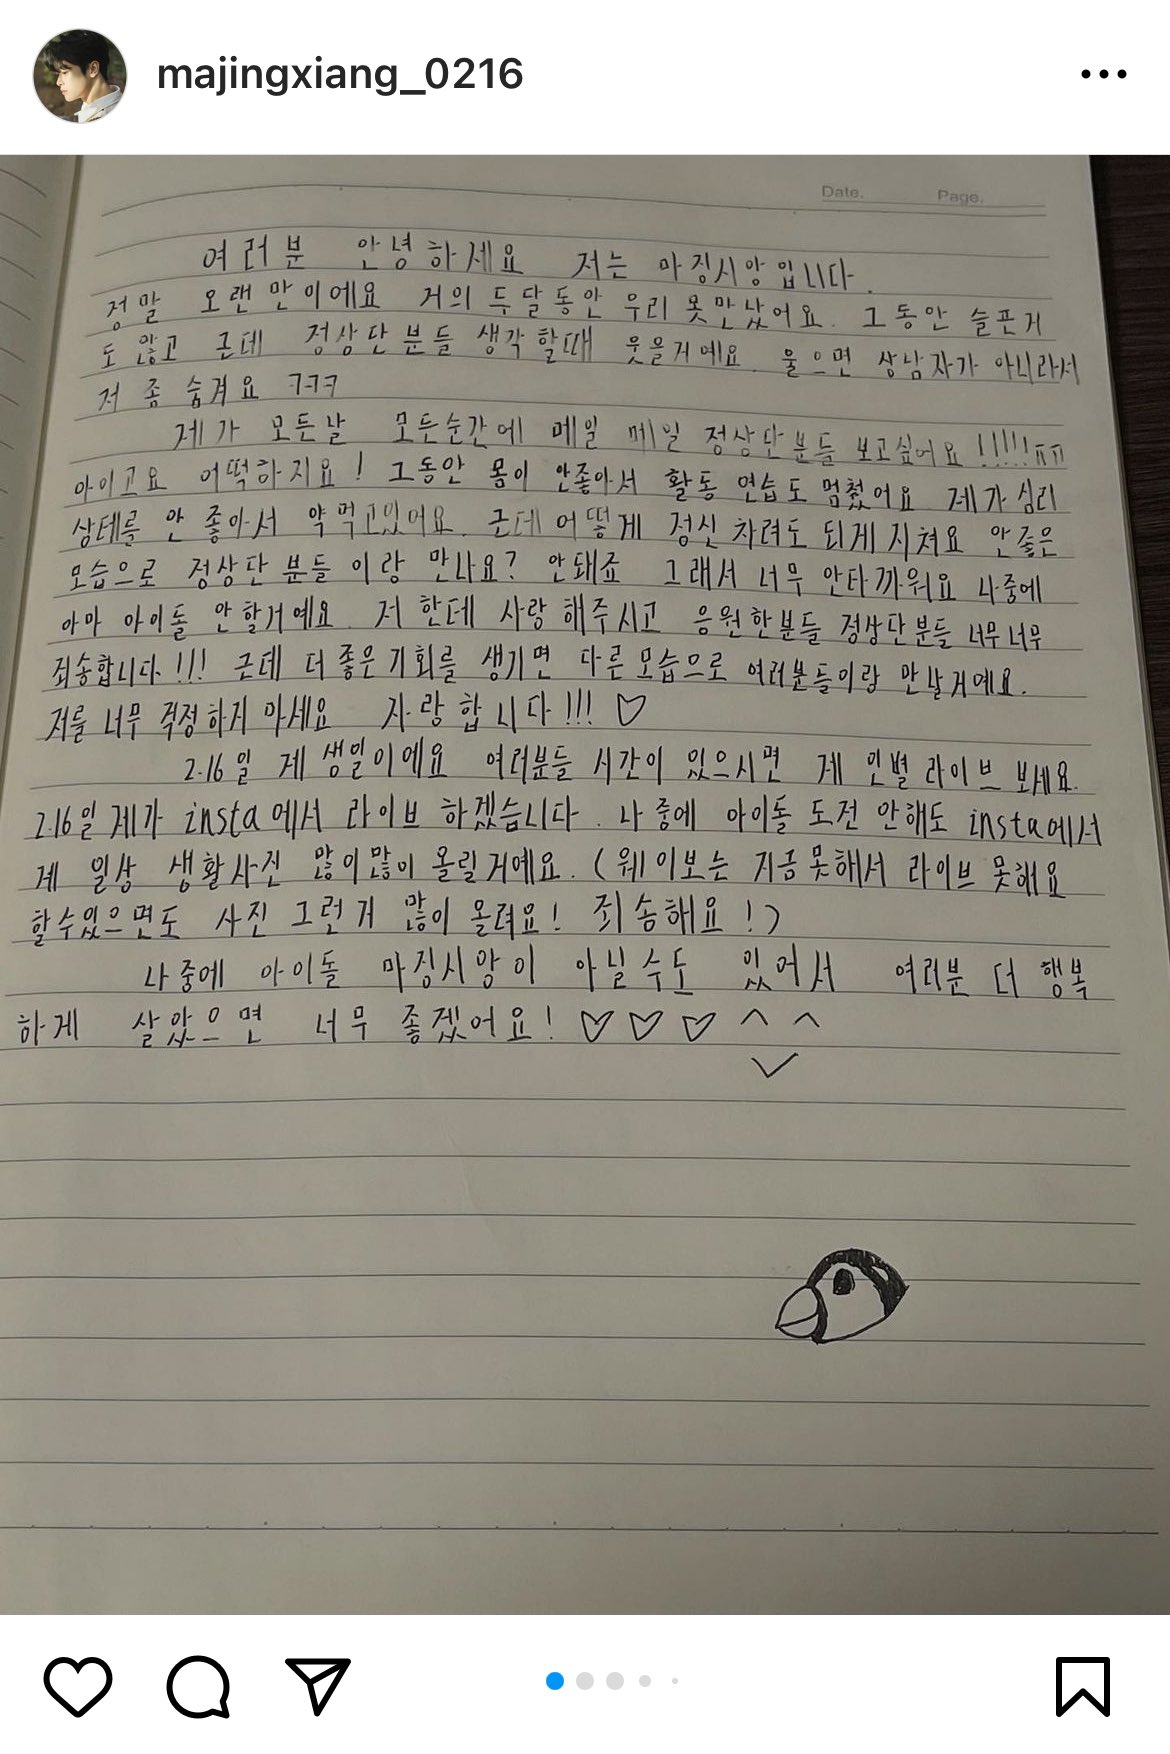 majingxiang_0216
Date. Page.
여러분 안녕하세요 저는 마징시앙입니다.
정말 오랜만이에요 거의 두달동안 우리 못만났어요. 그동안 슬픈거
도 많고 근데 정상단분들 생각할때 웃을거예요. 울으면 상남자가 아니라서
저 좀 숨겨요 ㅋㅋㅋ
제가 모든날 모든순간에 메일 메일 정상단분들 보고싶어요!!!!!ㅠㅠ
아이고요 어떡하지요! 그동안 몸이 안좋아서 활동 연습도 멈췄어요 제가 심리
상테를 안 좋아서 약먹고있어요. 근데 어떻게 정신 차려도 되게 지쳐요 안좋은
모습으로 정상단분들이랑 만나요? 안돼죠 그래서 너무 안타까워요 나중에
아마 아이돌 안할거예요. 저한테 사랑해주시고 응원한분들 정상단분들 너무너무
죄송합니다!!! 근데 더 좋은기회를 생기면 다른모습으로 여러분들이랑 만날거예요.
저를 너무 걱정하지 마세요 자랑합니다!!! ♡
2.16일 제 생일이에요 여러분들 시간이 있으시면 제 인별 라이브 보세요.
2.16일 제가 insta에서 라이브 하겠습니다. 나중에 아이돌 도전 안해도 insta에서
제 일상 생활사진 많이많이 올릴거예요. (웨이보는 지금못해서 라이브 못해요
할수있으면도 사진 그런거 많이 올려요! 죄송해요!)
나중에 아이돌 마징시앙이 아닐수도 있어서 여러분 더 행복
하게 살았으면 너무 좋겠어요! ♡ ♡ ♡ ^ ^